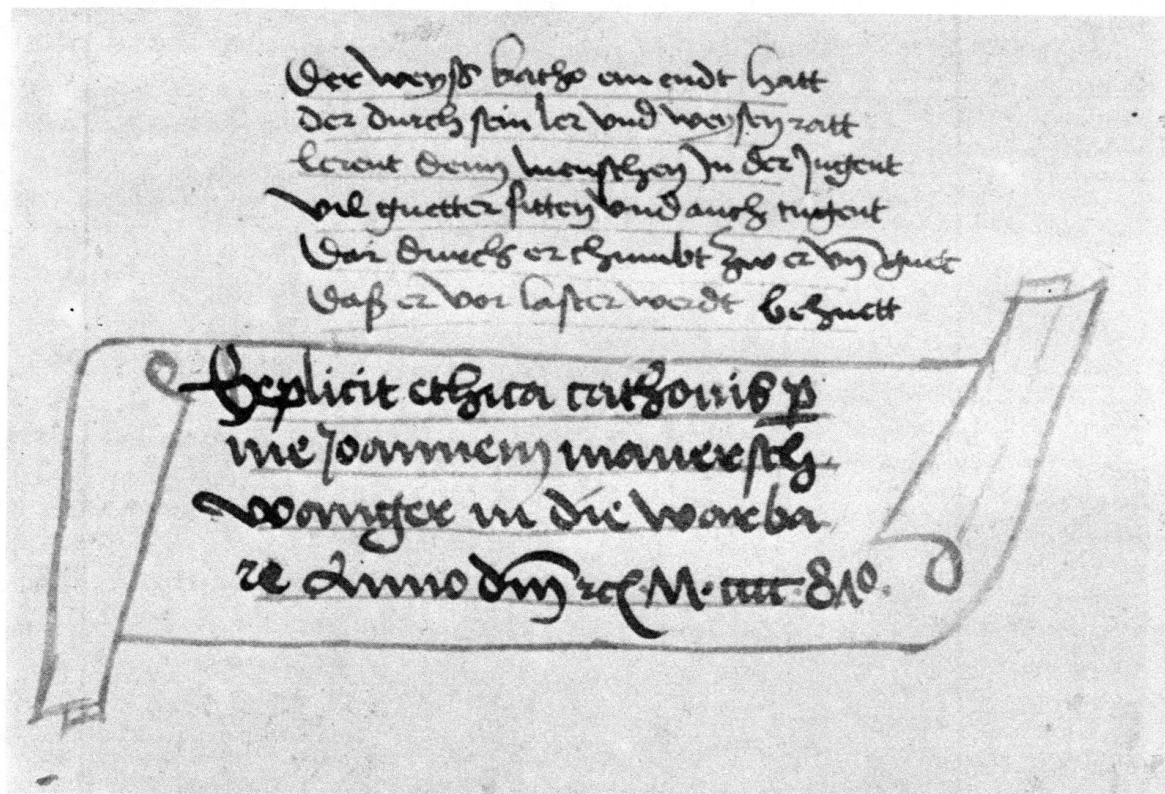 Der weyß katho ein endt hatt
der durch sein ler vnd weysen ratt
lerent denn menschen In der Jugent
vil guetter sitten vnd auch tugent
Dar durch er chumbt zw er vñ guet
Daß er vor laster werdt behuett
Explicit ethica cathonis p
me Joannem mauersch
wanger in die warba
re Anno dm̄ rc M cccc 81º